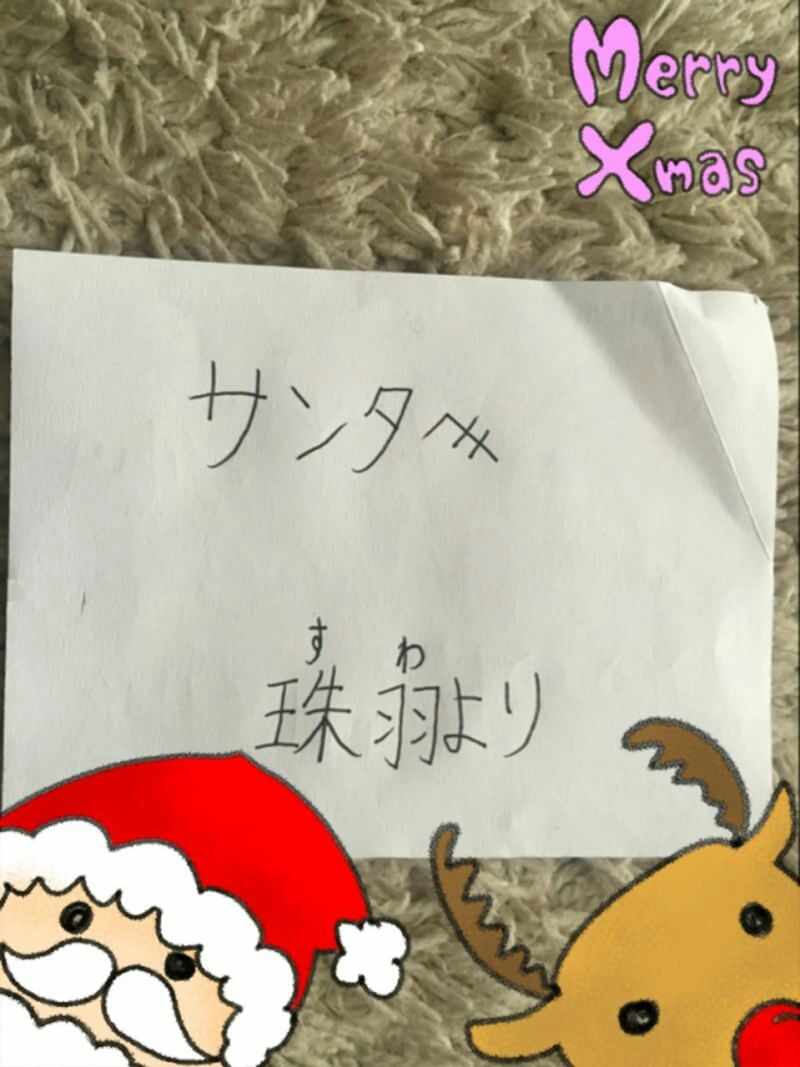 Merry
Xmas
サンタへ
すわ
珠羽より